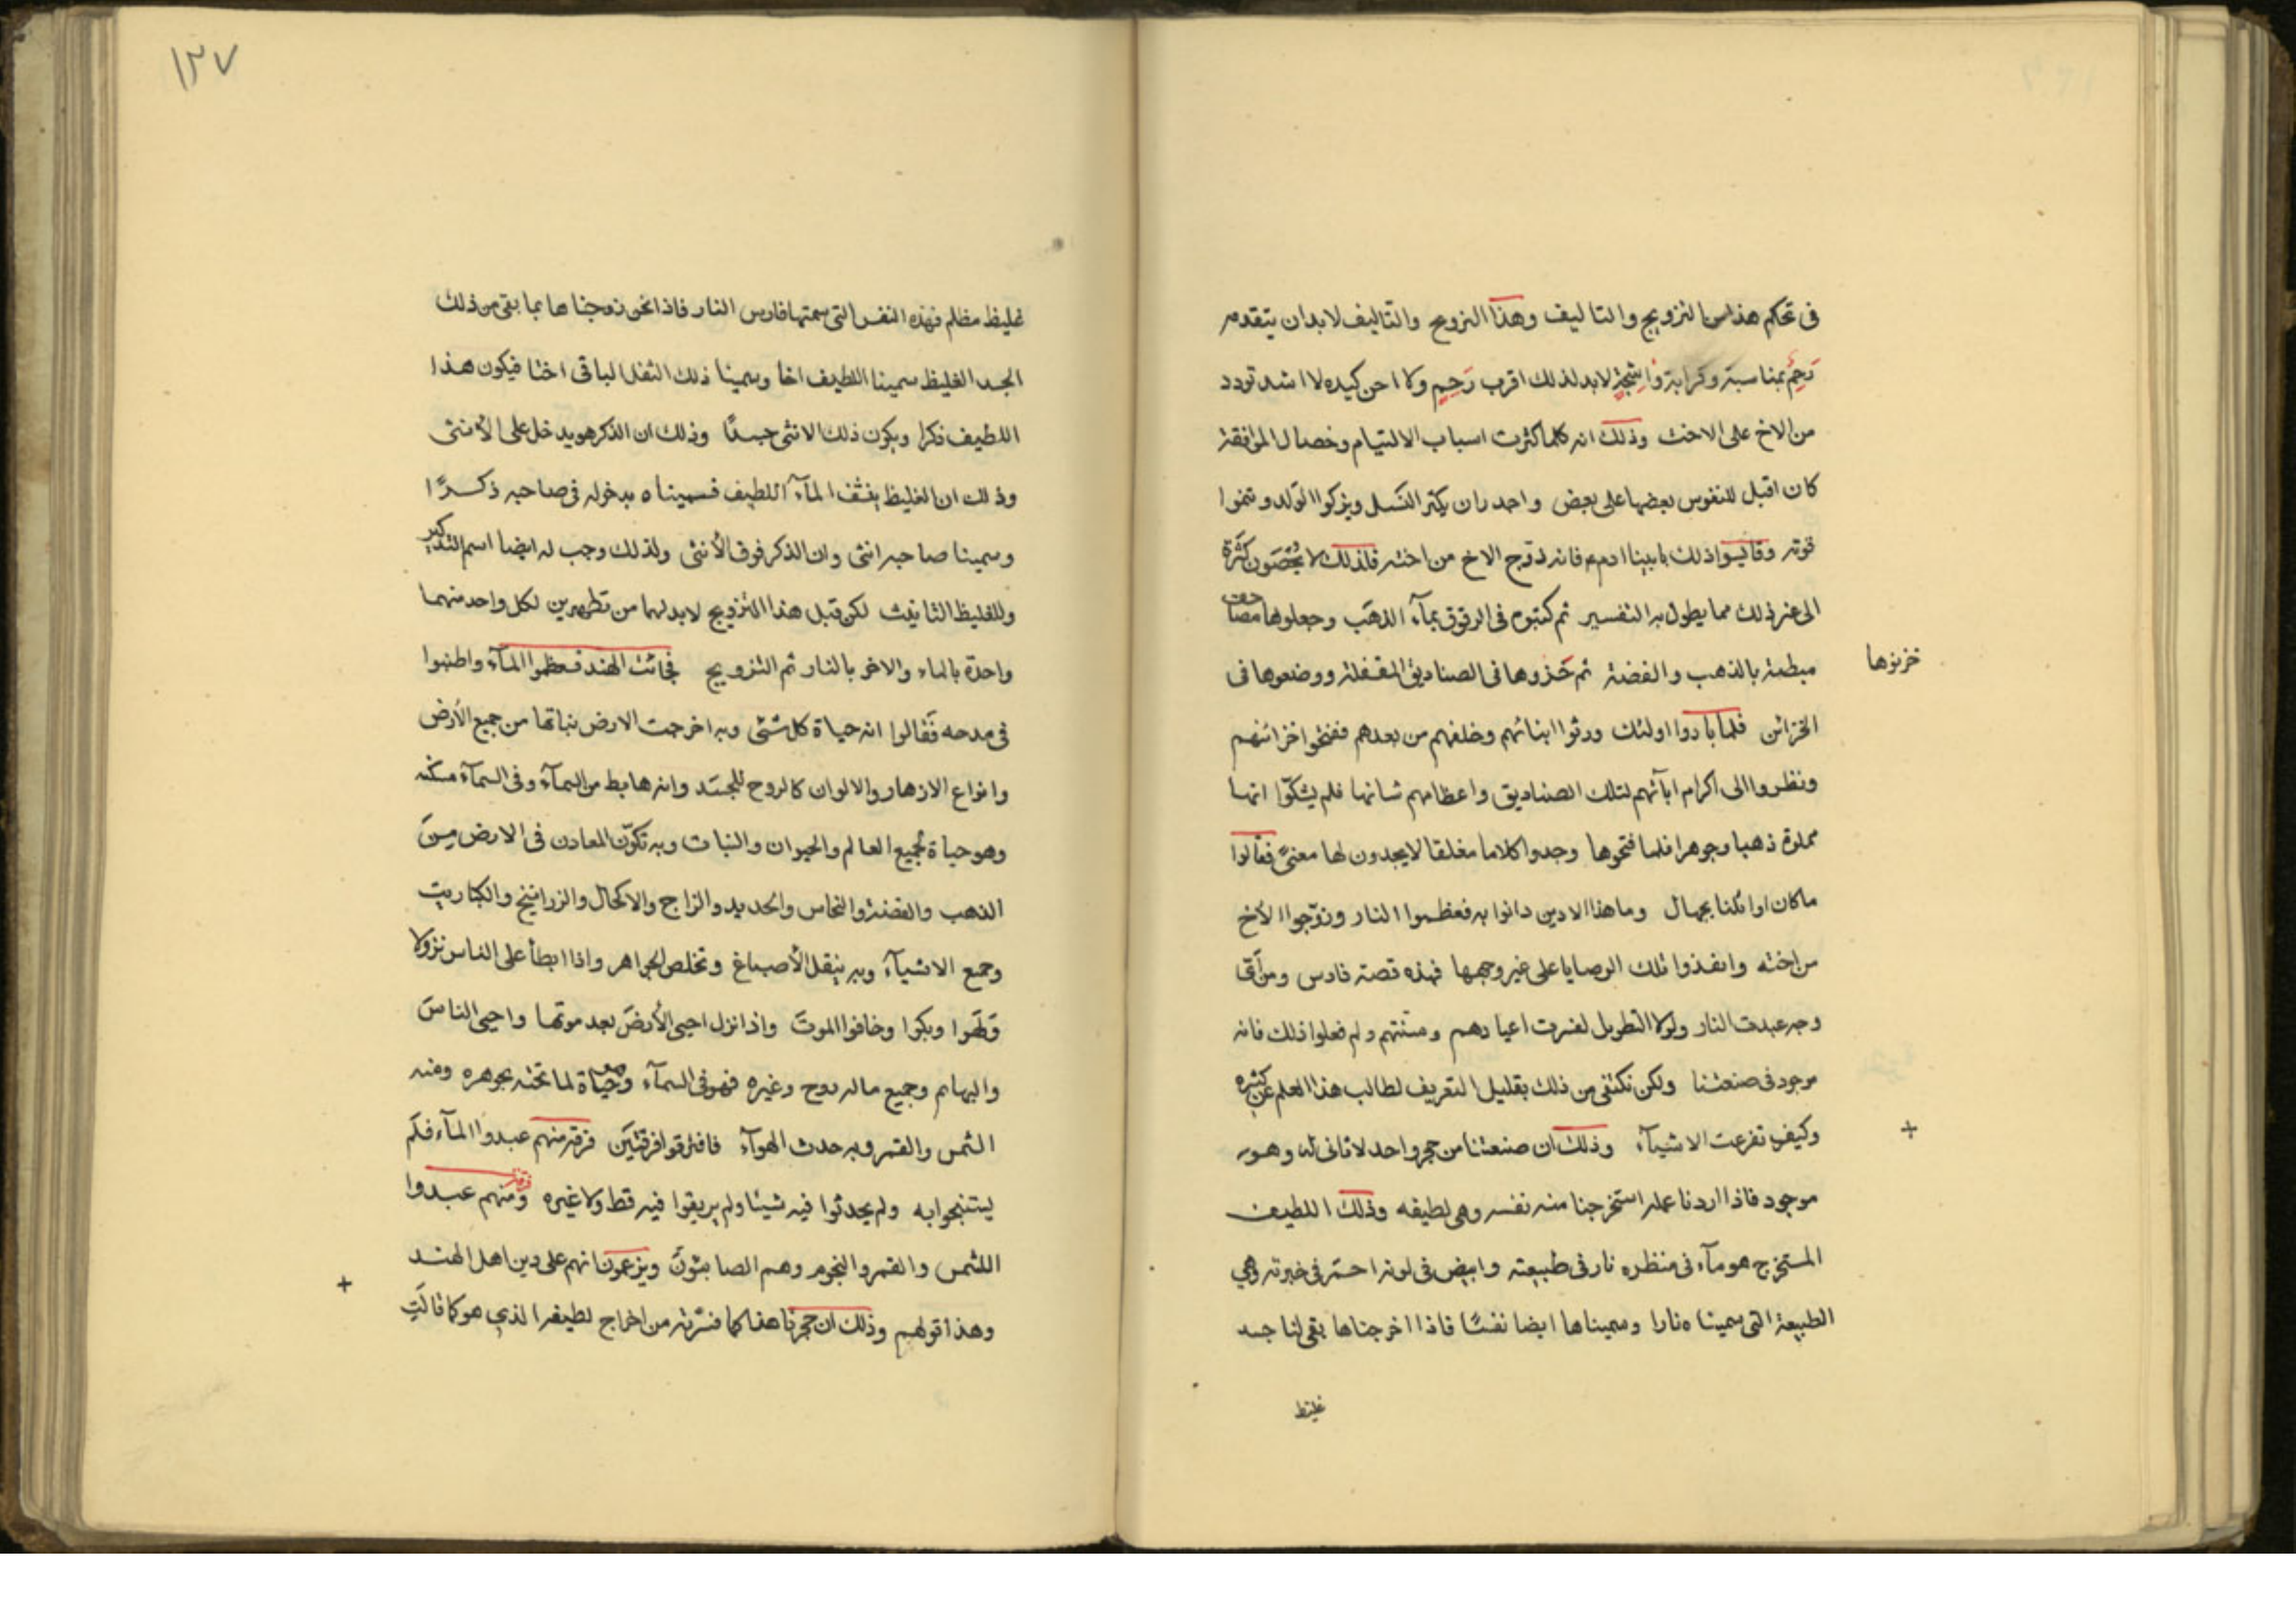 فى تحكم هذا من التزويج والتاليف وهذا التزويج والتاليف لابد ان يتقدمه
رَحِم بمناسبة وقرابة واشجة لابد لذلك اقرب رَحِم ولا احن كبده لا اشد تودد
من الاخ على الاخت وذلك انه كلما كثرت اسباب الالتيام وخصال الموافقة
كان اقبل للنفوس بعضها على بعض واجدر ان يكثر النَسل ويزكوا الولد وتنموا
قوته وقاليوا ذلك بابينا ادم ع فانه زوّج الاخ من اخته فلذلك لا يُحْصَون كَثرة
الى غير ذلك مما يطول به التفسير ثم كتبوه فى الرقوق بمآء الذهَب وجعلوها مصاحف
مبطنة بالذهب والفضة ثم خزوها فى الصناديق المقفلة ووضعوها فى
خزنوها
الخزائن فلما بادوا اولئك ورثوا ابنائهم وخلفهم من بعدهم ففتحوا خزائنهم
ونظروا الى اكرام ابآئهم لتلك الصناديق واعظامهم شانها فلم يشكّوا انها
مملوة ذهبا وجوهرا فلما فتحوها وجدوا كلاما مغلقا لا يجدون لها معنىً فقالوا
ما كان اوائلنا بجهال وما هذا الا دين دانوا به فعظموا النار وزوّجوا الأخ
من اخته وانفذوا تلك الوصايا على غير وجهها فهذه قصة فارس ومن اى
وجه عبدت النار ولولا التطويل لفسرت اعيادهم وسنتهم ولم فعلوا ذلك فانه
موجود فى صنعتنا ولكن نكتفى من ذلك بقليل التعريف لطالب هذا العلم عن كثيره
وكيف تفرعت الاشيآء وذلك ان صنعتنا من حجر واحد لا ثانى له وهو
+
موجود فاذا اردنا عمله استخرجنا منه نفسه وهى لطيفه وذلك اللطيف
المستخرج هو مآء فى منظره نار فى طبيعته وابيض فى لونه احمر فى خبرته وهي
الطبيعة التى سميناه نارا وسميناها ايضا نفسًا فاذا اخرجناها بقى لنا جسد
غليظ
١٣٧
غليظ مظلم فهذه النفس التى سمتها فارس النار فاذا نحن زوجناها بما بقى من ذلك
الجسد الغليظ سمينا اللطيف اخا وسمينا ذلك الثفل الباقى اختا فيكون هذا
اللطيف ذكرا ويكون ذلك الانثى جسدًا وذلك ان الذكر هو يدخل على الأنثى
وذلك ان الغليظ ينشف المآء اللطيف فسميناه بدخوله فى صاحبه ذكرًا
وسمينا صاحبه انثى وان الذكر فوق الأنثى ولذلك وجب له ايضا اسم التذكير
وللغليظ التانيث لكن قبل هذا التزويج لابد لهما من تطهيرين لكل واحد منهما
واحدة بالماء والاخر بالنار ثم التزويج فجائت الهند فعظموا المآء واطنبوا
فى مدحه فَقالوا انه حياة كل شئ وبه اخرجت الارض نباتها من جميع الأرض
وانواع الازهار والالوان كالروح للجسَد وانه هابط من السمآء وفى السمآء مسكنه
وهو حياة لجميع العالم والحيوان والنبات وبه تكوّن المعادن فى الارض مِن
الذهب والفضة والنحاس والحديد والزاج والاكحال والزرانيخ والكباريت
وجمع الاشيآء وبه ينقل الأصباغ وتخلص الجواهر واذا ابطأ على الناس نزولا
قَلَقوا وبكوا وخافوا الموتَ واذا نزل احيى الأرضَ بعد موتها واحيى الناسَ
والبهايم وجميع ما له روح وغيره فهو فى السمآء وحياة لما تحته بجوهره ومنه
الشمس والقمر وبه حدث الهوآء فافترقوا فرقتَين فرقة منهم عبدوا المآء فلَم
يستنجوا به ولم يحدثوا فيه شيئا ولم يريقوا فيه قط ولا غيره وفرقة منهم عبدوا
الشمس والقمر والنجوم وهم الصابئونَ ويزعمون انهم على دين اهل الهند
+
وهذا قولهم وذلك ان حجرنا هذا كما فسّرته من اخراج لطيفه الذي هو كما قالَتِ